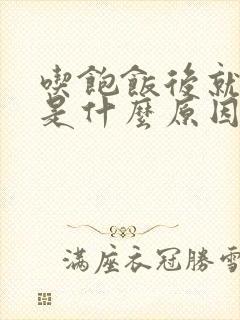 喫飽飯後就
是什麼原因
滿座衣冠勝雪